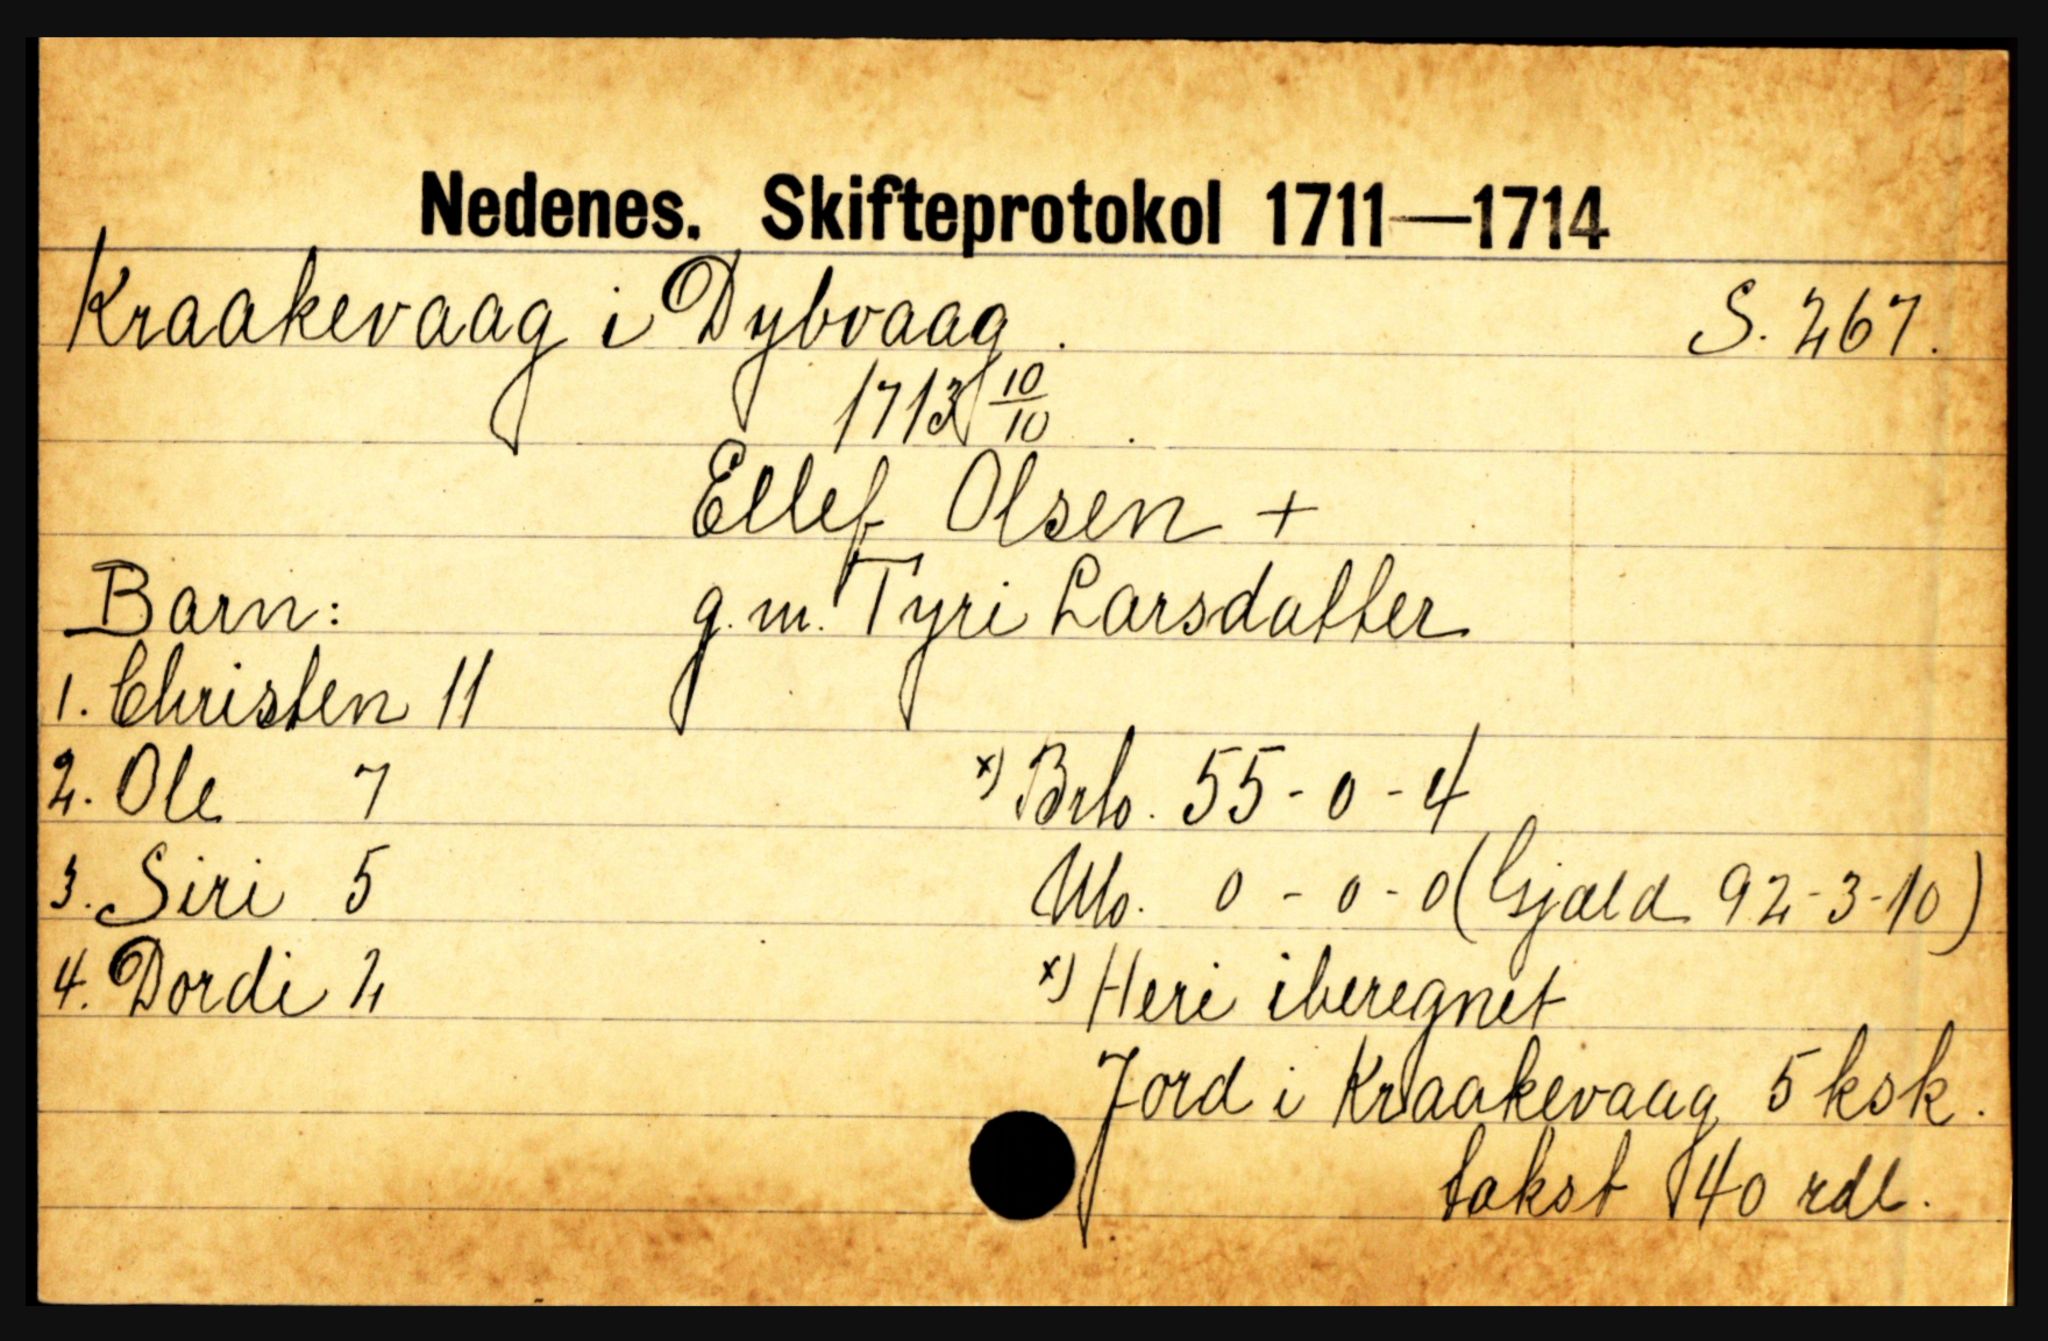 Nedenes. Skifteprotokol 1711—1714
Kraakevaag i Dybvaag. S. 267.
1713 10/10
Ellef Olsen +
Barn: g.m. Tyri Larsdatter
1. Christen 11
2. Ole 7 x) Brb. 55-0-4
3. Siri 5 Nb. 0-0-0 (Gjæld 92-3-10)
4. Dordi 2 x) Heri iberegnet
Jord i Kraakevaag 5 ksk.
takst 40 rdl.